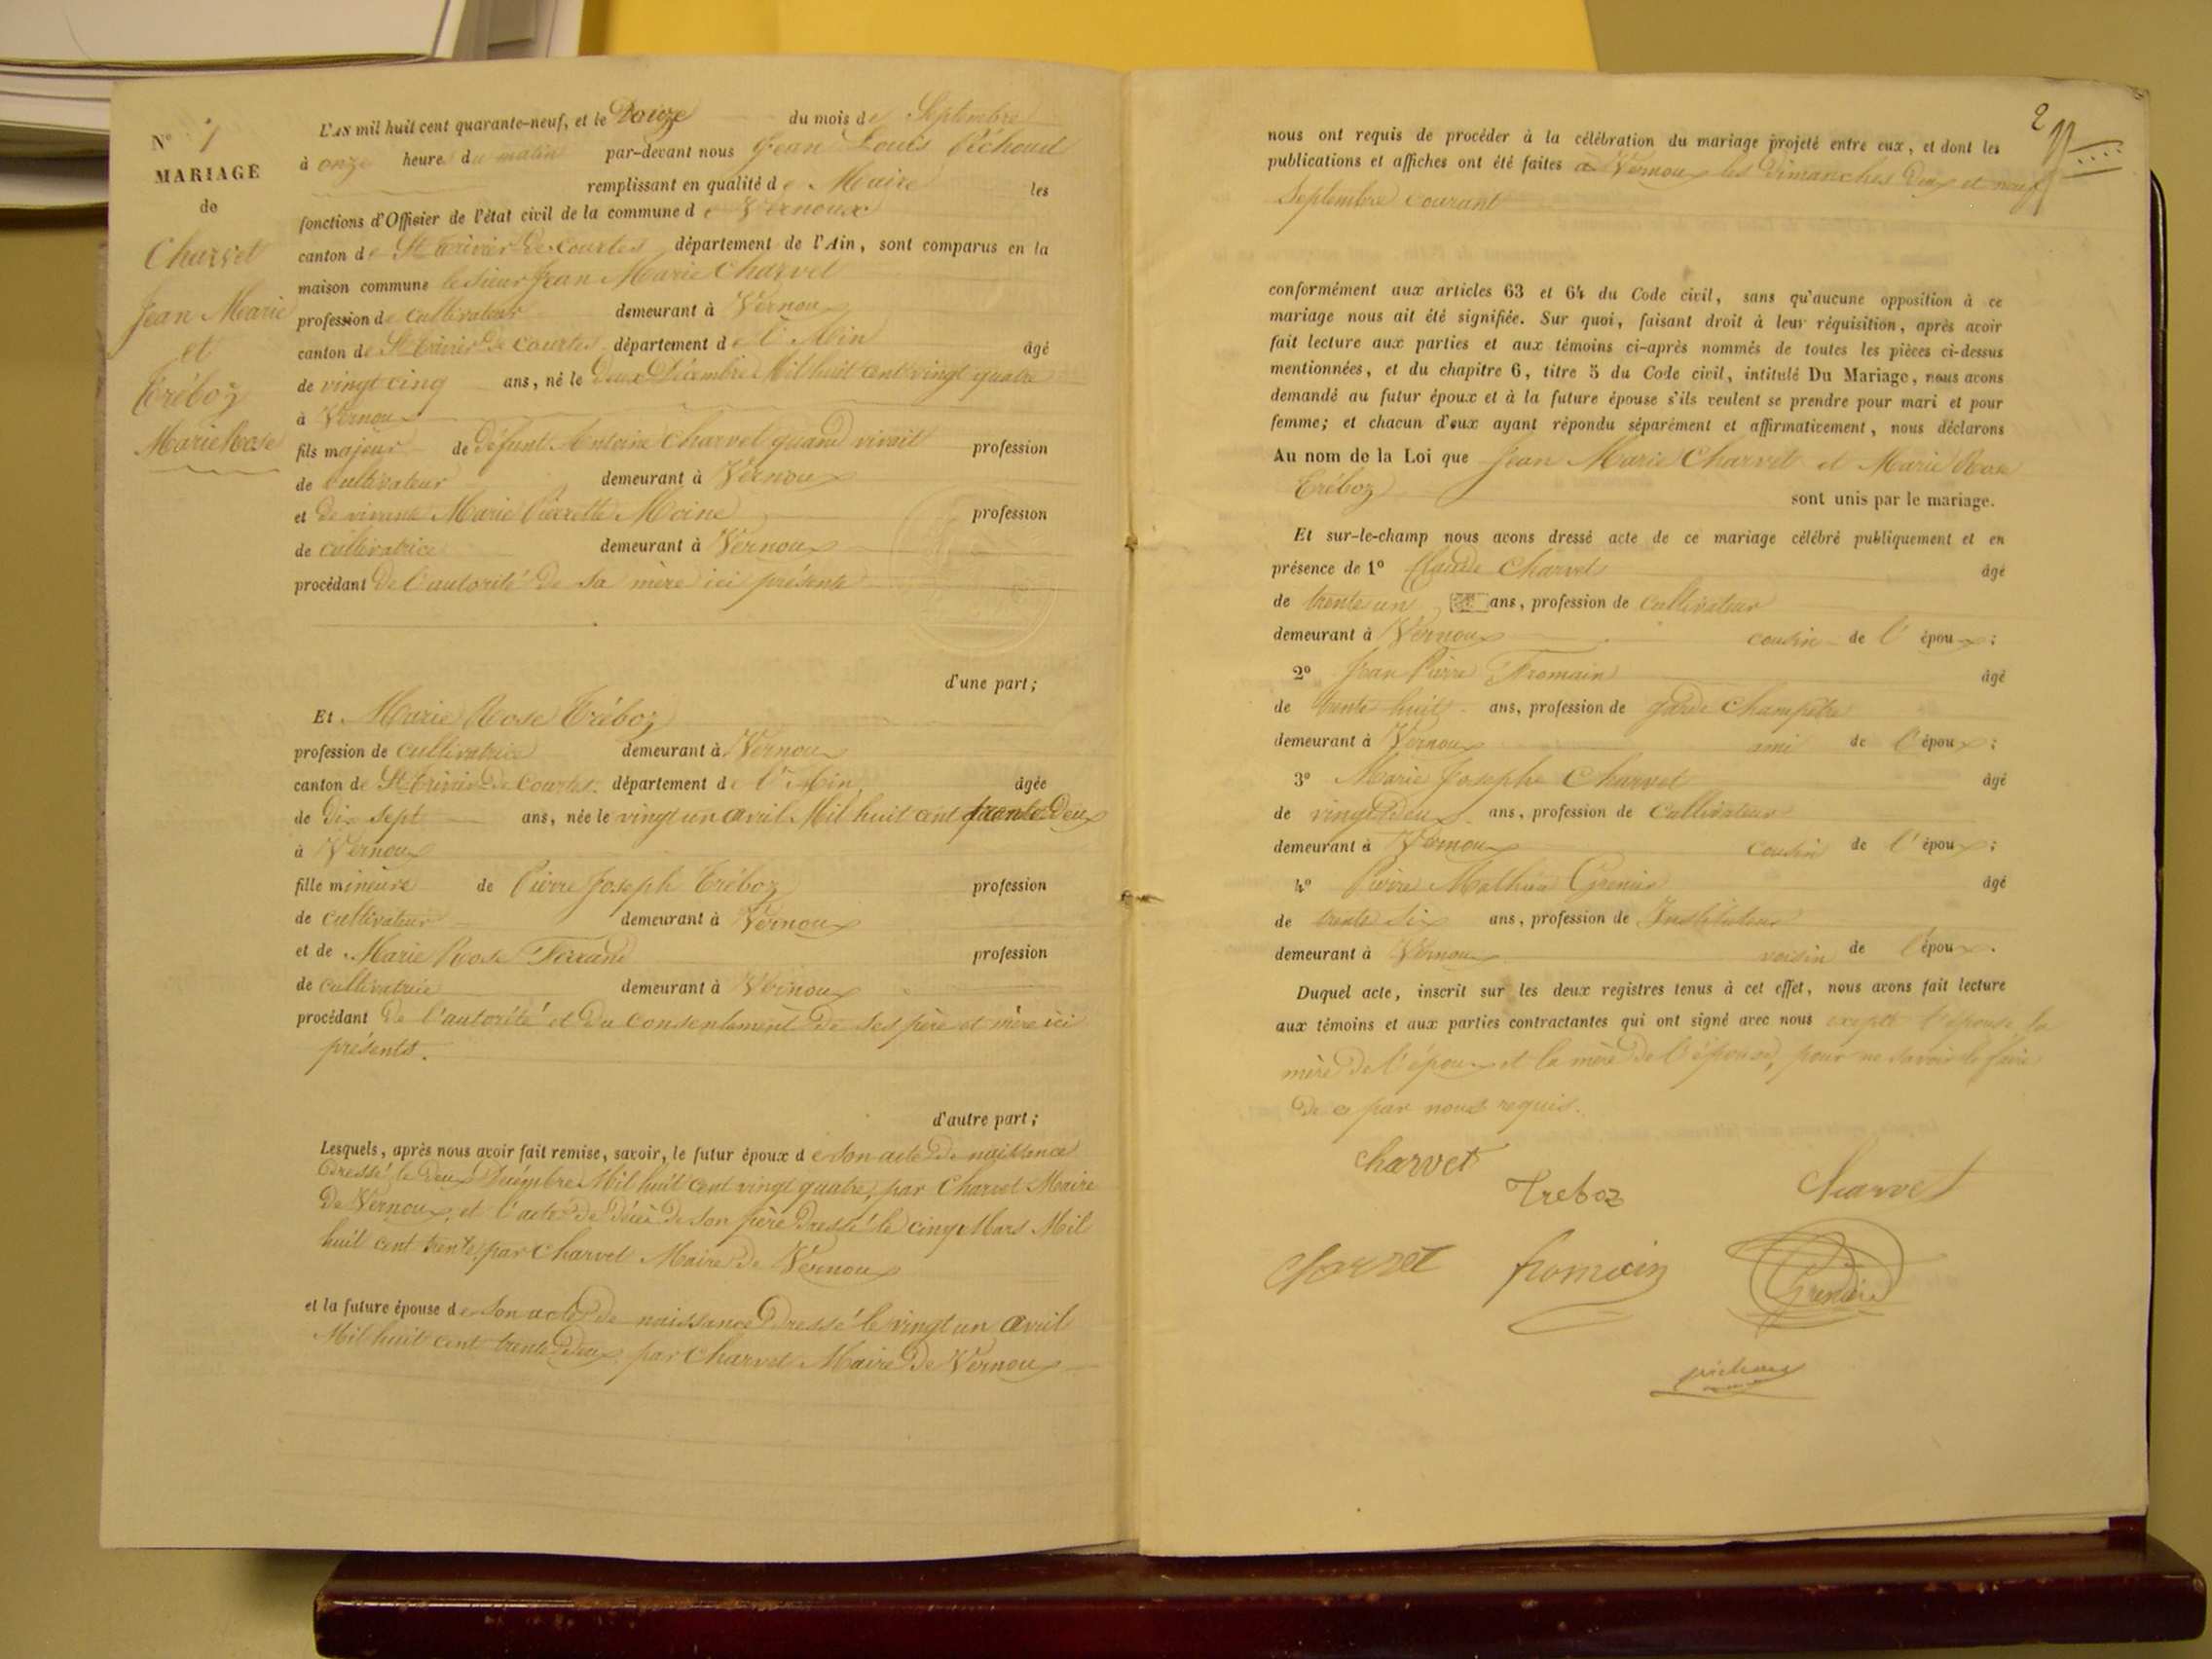 N° 1
MARIAGE
de
Charvet
Jean Marie
et
Tréboz
Marie Rose
L'AN mil huit cent quarante-neuf, et le Douze du mois de Septembre
à onze heures du matin par-devant nous Jean Louis Péchoud
remplissant en qualité de Maire les
fonctions d'Officier de l'état civil de la commune de Vernoux
canton de St Trivier de Courtes département de l'Ain, sont comparus en la
maison commune le sieur Jean Marie Charvet
profession de cultivateur demeurant à Vernoux
canton de St Trivier de Courtes département de l'Ain âgé
de vingt cinq ans, né le Deux Décembre Mil huit cent vingt quatre
à Vernoux
fils majeur de défunt Antoine Charvet quand vivait profession
de cultivateur demeurant à Vernoux
et de vivante Marie Pierrette Moine profession
de cultivatrice demeurant à Vernoux
procédant De l'autorité De sa mère ici présente
d'une part;
Et Marie Rose Tréboz
profession de cultivatrice demeurant à Vernoux
canton de St Trivier de Courtes département de l'Ain âgée
de Dix sept ans, née le vingt un avril Mil huit cent trente Deux
à Vernoux
fille mineure de Pierre Joseph Tréboz profession
de cultivateur demeurant à Vernoux
et de Marie Rose Ferrand profession
de cultivatrice demeurant à Vernoux
procédant De l'autorité et Du consentement De ses père et mère ici
présents.
d'autre part;
Lesquels, après nous avoir fait remise, savoir, le futur époux de son acte De naissance
Dressé le Deux Décembre Mil huit cent vingt quatre, par Charvet Maire
De Vernoux, et l'acte De décès De son père Dressé le cinq Mars Mil
huit cent trente, par Charvet Maire De Vernoux
et la future épouse de son acte De naissance Dressé le vingt un avril
Mil huit cent trente Deux, par Charvet Maire De Vernoux
2
nous ont requis de procéder à la célébration du mariage projeté entre eux, et dont les
publications et affiches ont été faites à Vernoux les Dimanches Deux et neuf
Septembre courant
conformément aux articles 63 et 64 du Code civil, sans qu'aucune opposition à ce
mariage nous ait été signifiée. Sur quoi, faisant droit à leur réquisition, après avoir
fait lecture aux parties et aux témoins ci-après nommés de toutes les pièces ci-dessus
mentionnées, et du chapitre 6, titre 5 du Code civil, intitulé Du Mariage, nous avons
demandé au futur époux et à la future épouse s'ils veulent se prendre pour mari et pour
femme; et chacun d'eux ayant répondu séparément et affirmativement, nous déclarons
Au nom de la Loi que Jean Marie Charvet et Marie Rose
Tréboz sont unis par le mariage.
Et sur-le-champ nous avons dressé acte de ce mariage célébré publiquement et en
présence de 1° Claude Charvet âgé
de trente un ans, profession de Cultivateur
demeurant à Vernoux cousin de l'époux;
2° Jean Pierre Fromain âgé
de trente huit ans, profession de garde Champêtre
demeurant à Vernoux ami de l'époux;
3° Marie Josephe Charvet âgé
de vingt Deux ans, profession de Cultivateur
demeurant à Vernoux cousin de l'époux;
4° Pierre Mathieu Grenier âgé
de trente Six ans, profession de Instituteur
demeurant à Vernoux voisin de l'époux.
Duquel acte, inscrit sur les deux registres tenus à cet effet, nous avons fait lecture
aux témoins et aux parties contractantes qui ont signé avec nous excepté l'épouse la
mère De l'époux et la mère De l'épouse, pour ne savoir le faire
De ce par nous requis.
Charvet
Treboz
Charvet
Charvet
fromain
Grenier
péchoud